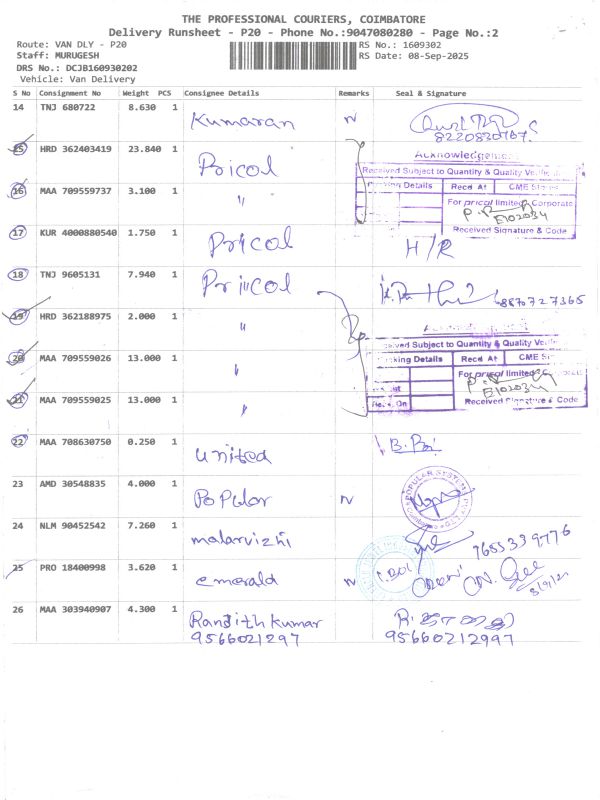 THE PROFESSIONAL COURIERS, COIMBATORE
Delivery Runsheet - P20 - Phone No.:9047080280 - Page No.:2
Route: VAN DLY - P20
RS No.: 1609302
Staff: MURUGESH
RS Date: 08-Sep-2025
DRS No.: DCJB160930202
Vehicle: Van Delivery
S No Consignment No Weight PCS Consignee Details Remarks Seal & Signature
14 TNJ 680722 8.630 1 Kumaran N
15 HRD 362403419 23.840 1 Pricol
Acknowledgement
Received Subject to Quantity & Quality
Details Recd At CME
16 MAA 709559737 3.100 1 "
For pricol limited, Corporate
E102034
Received Signature & Code
17 KUR 4000880540 1.750 1 Pricol H/R
18 TNJ 9605131 7.940 1 Pricol 8870727365
19 HRD 362188975 2.000 1 "
Subject to Quantity & Quality
20 MAA 709559026 13.000 1 "
Details Recd At CME
For pricol limited
E102034
21 MAA 709559025 13.000 1 "
Received Signature & Code
22 MAA 708630750 0.250 1 united
23 AMD 30548835 4.000 1 Popular N
POPULAR SYSTEM
24 NLM 90452542 7.260 1 malarvizhi
25 PRO 18400998 3.620 1 emerald N
26 MAA 303940907 4.300 1 Ranjith Kumar
9566021297 95660212997